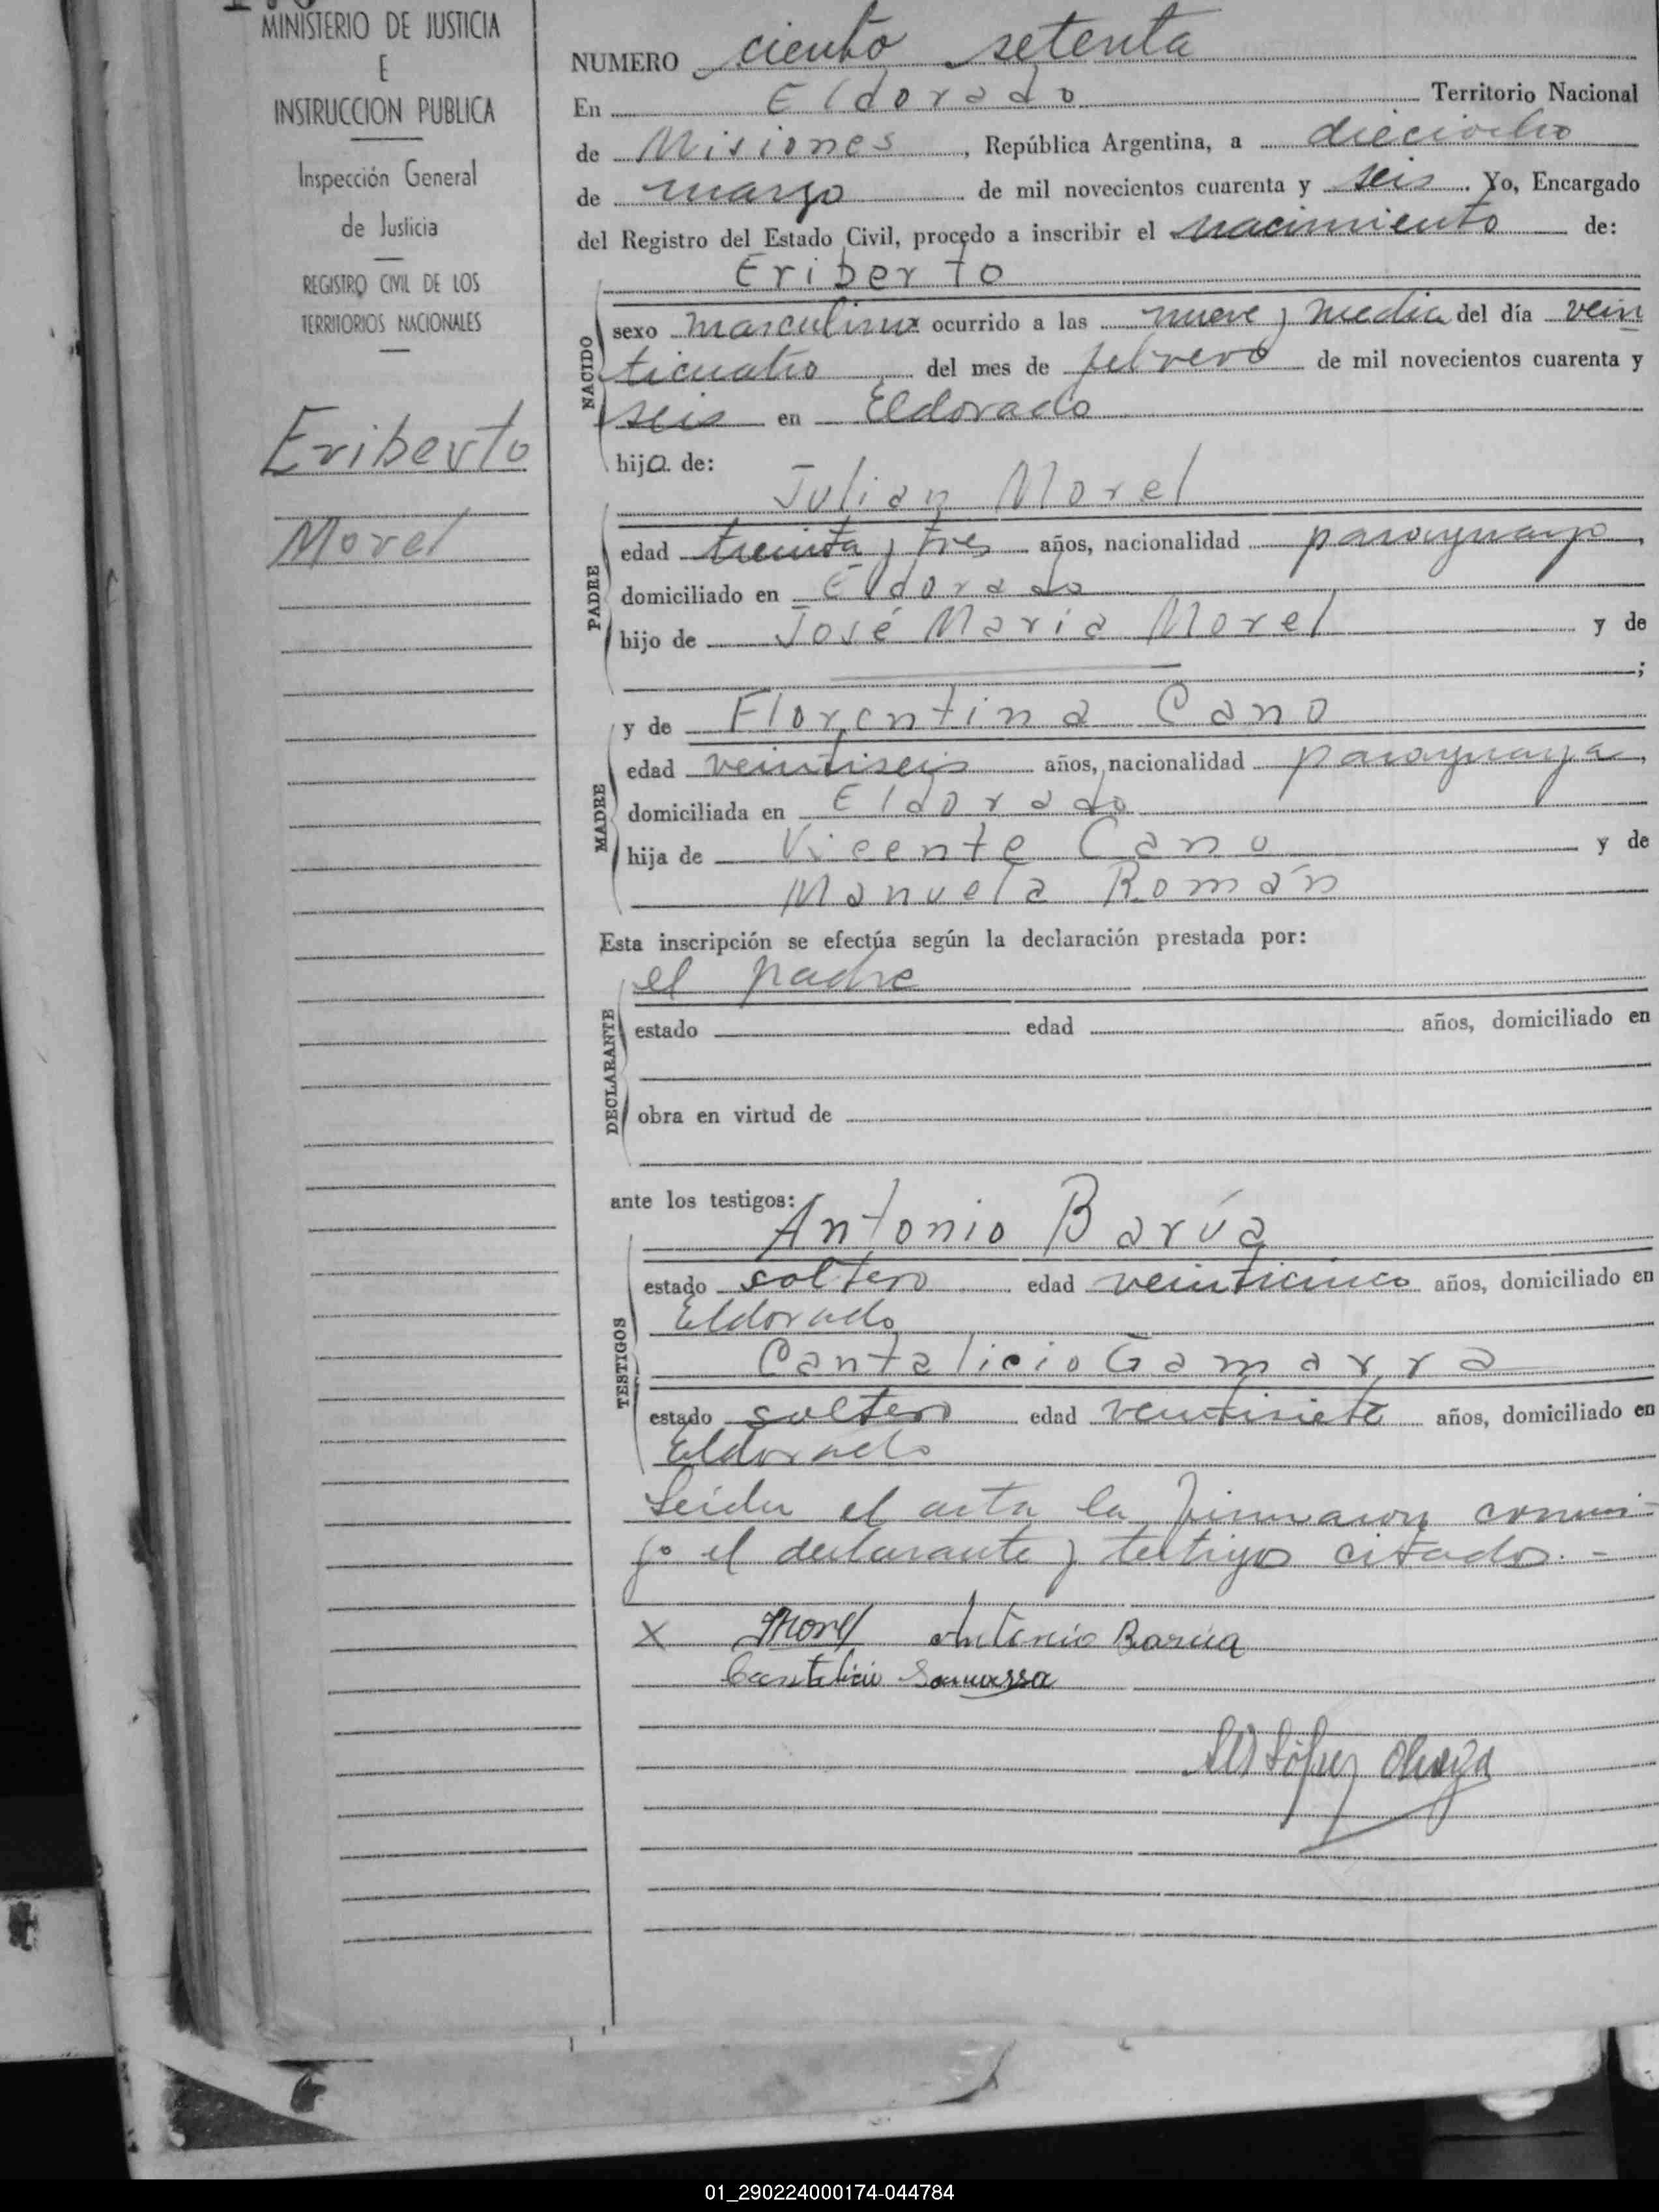 MINISTERIO DE JUSTICIA
E
INSTRUCCION PUBLICA
Inspección General
de Justicia
REGISTRO CIVIL DE LOS
TERRITORIOS NACIONALES
Eriberto
Morel
NUMERO ciento setenta
En Eldorado Territorio Nacional
de Misiones, República Argentina, a dieciocho
de marzo de mil novecientos cuarenta y seis. Yo, Encargado
del Registro del Estado Civil, procedo a inscribir el nacimiento de:
Eriberto
NACIDO
sexo masculino ocurrido a las nueve y media del día vein
ticuatro del mes de febrero de mil novecientos cuarenta y
seis en Eldorado
hijo de:
Julian Morel
PADRE
edad treinta y tres años, nacionalidad paraguayo,
domiciliado en Eldorado
hijo de José Maria Morel y de
;
y de Florentina Cano
MADRE
edad veintiseis años, nacionalidad paraguaya,
domiciliada en Eldorado
hija de Vicente Cano y de
Manuela Román
Esta inscripción se efectúa según la declaración prestada por:
el padre
DECLARANTE
estado edad años, domiciliado en
obra en virtud de
ante los testigos:
Antonio Barúa
TESTIGOS
estado soltero edad veinticinco años, domiciliado en
Eldorado
Cantalicio Gamarra
estado soltero edad veintisiete años, domiciliado en
Eldorado
Leida el acta la firmaron conmi-
go el declarante y testigos citados.-
X JMorel Antonio Barúa
Cantalicio Gamarra
López
01_290224000174-044784